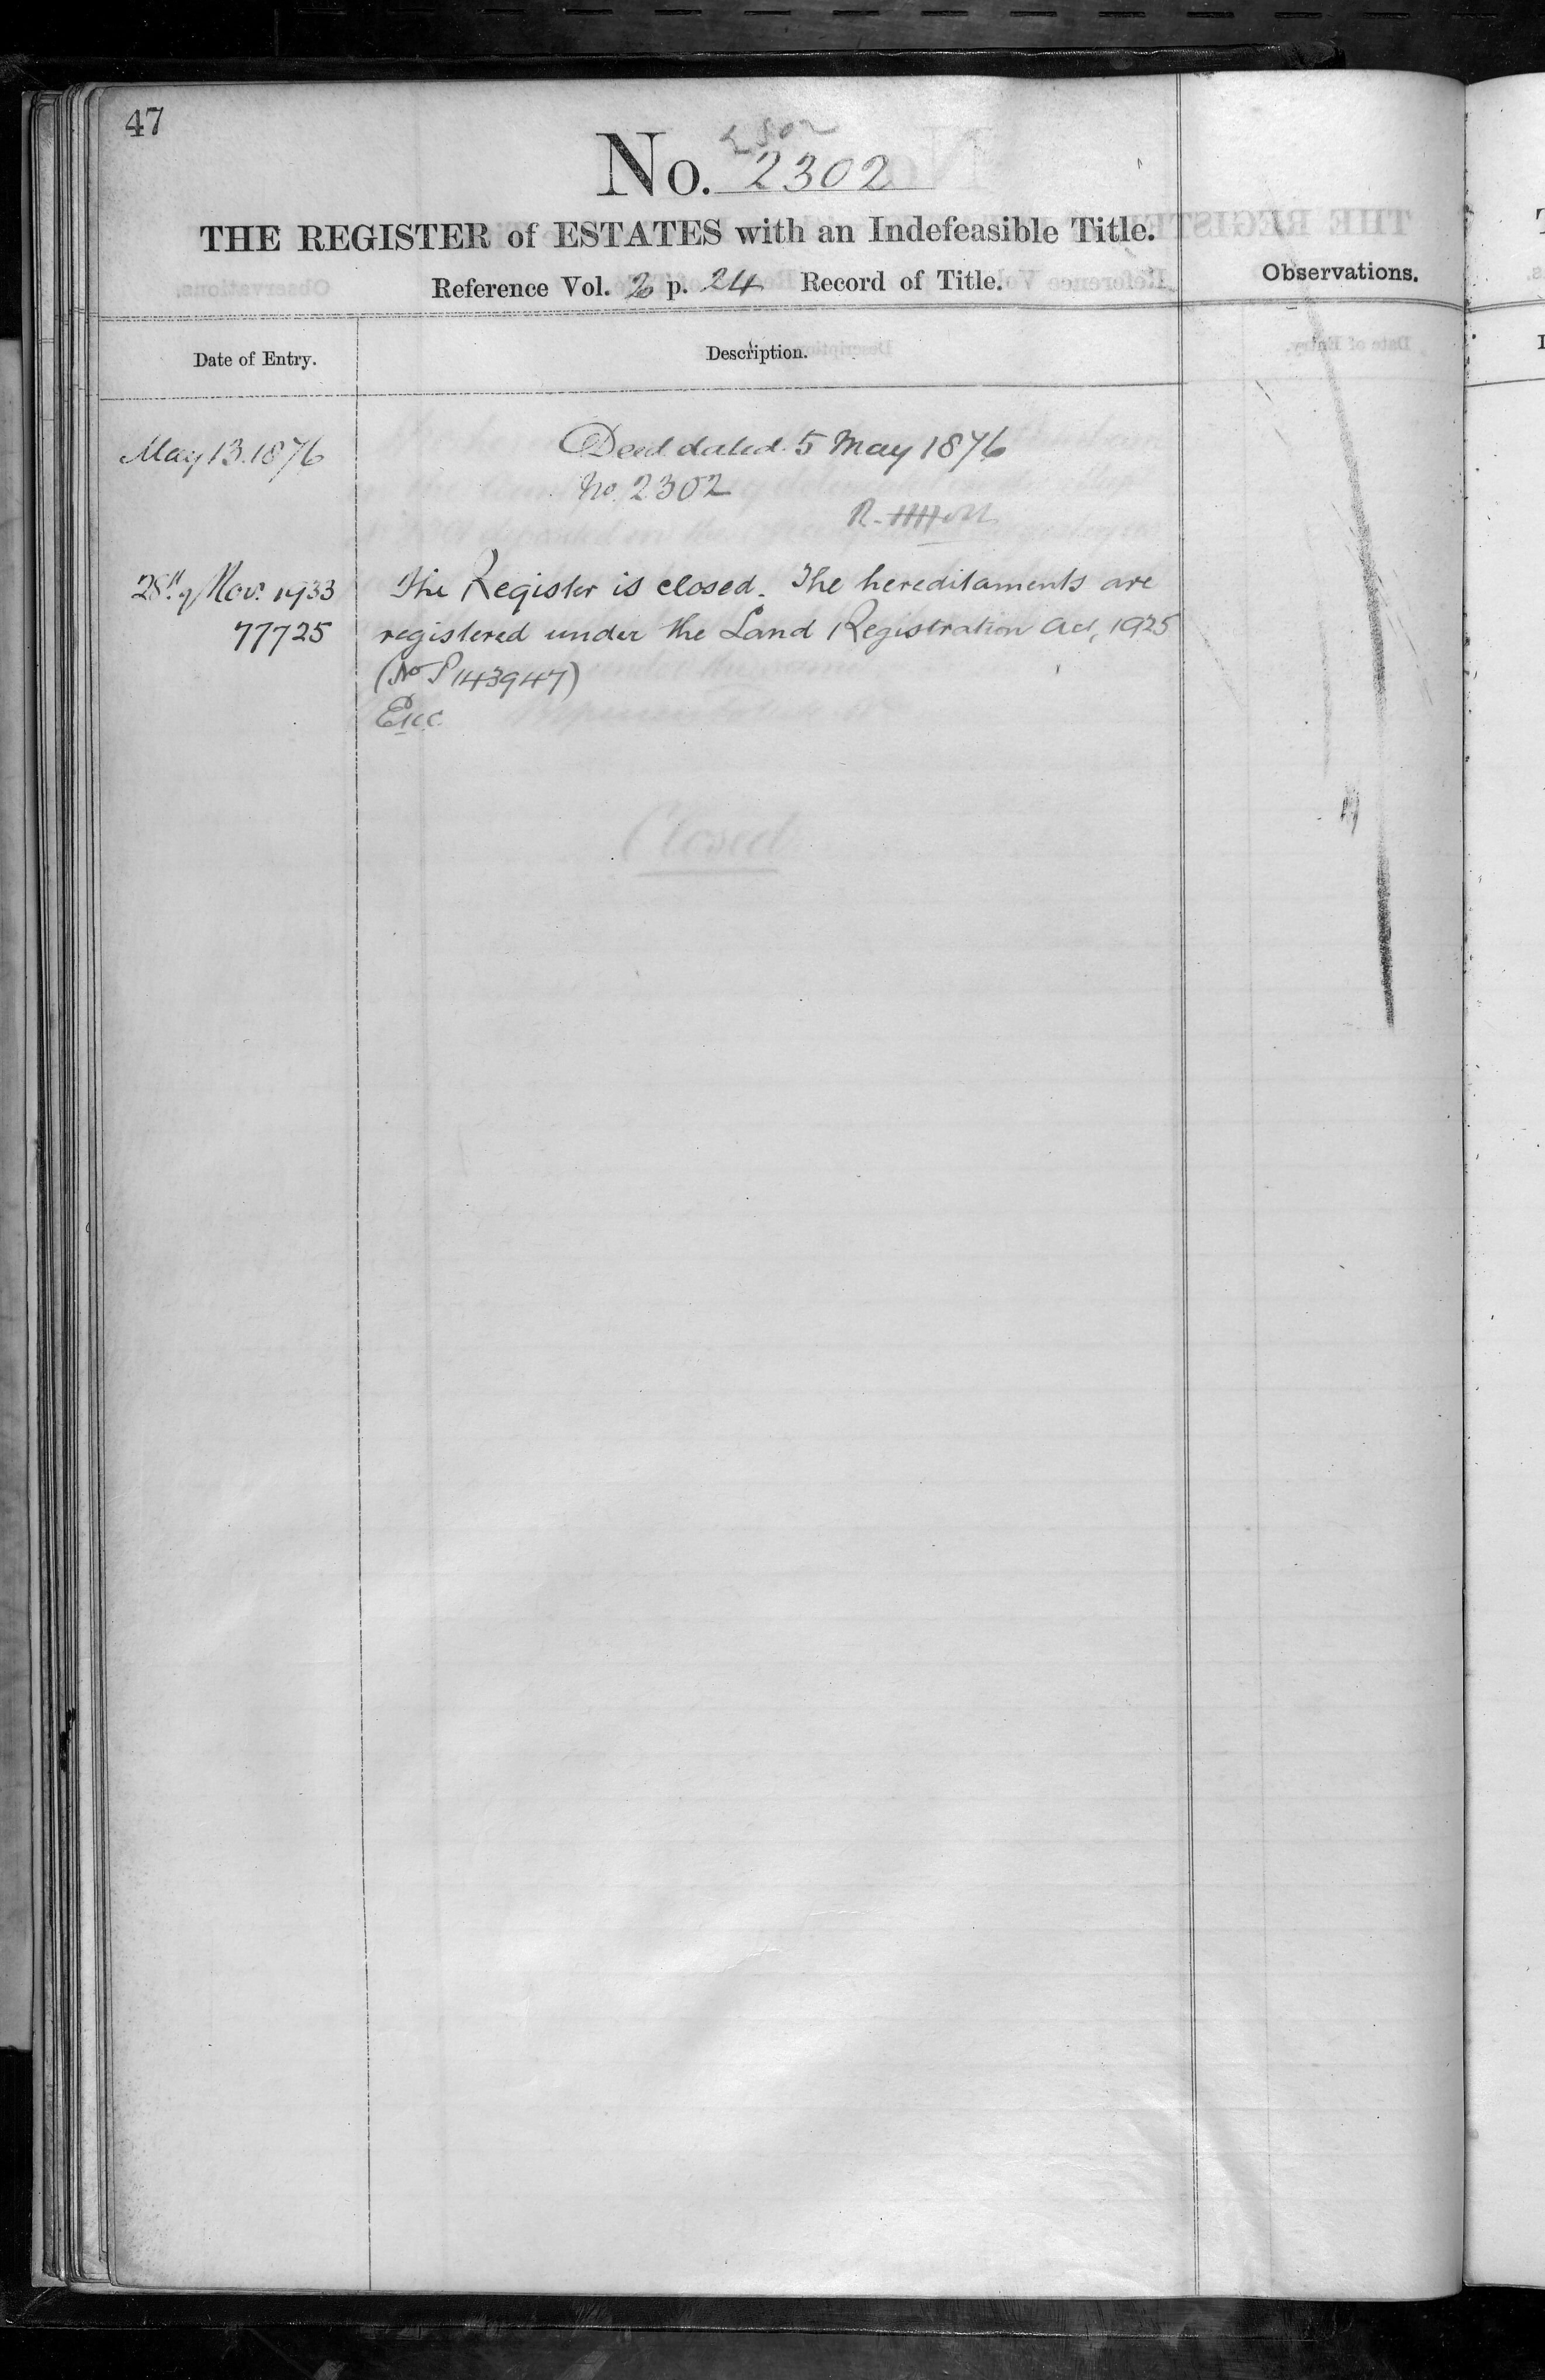 47
2302
No. 2302
THE REGISTER of ESTATES with an Indefeasible Title.
Reference Vol. 2 p. 24 Record of Title.
Observations.
Date of Entry.
Description.
May 13. 1876
Deed dated 5 May 1876
No. 2302
28th Nov. 1933
77725
The Register is closed. The hereditaments are
registered under the Land Registration Act, 1925
(No P143947)
Closed